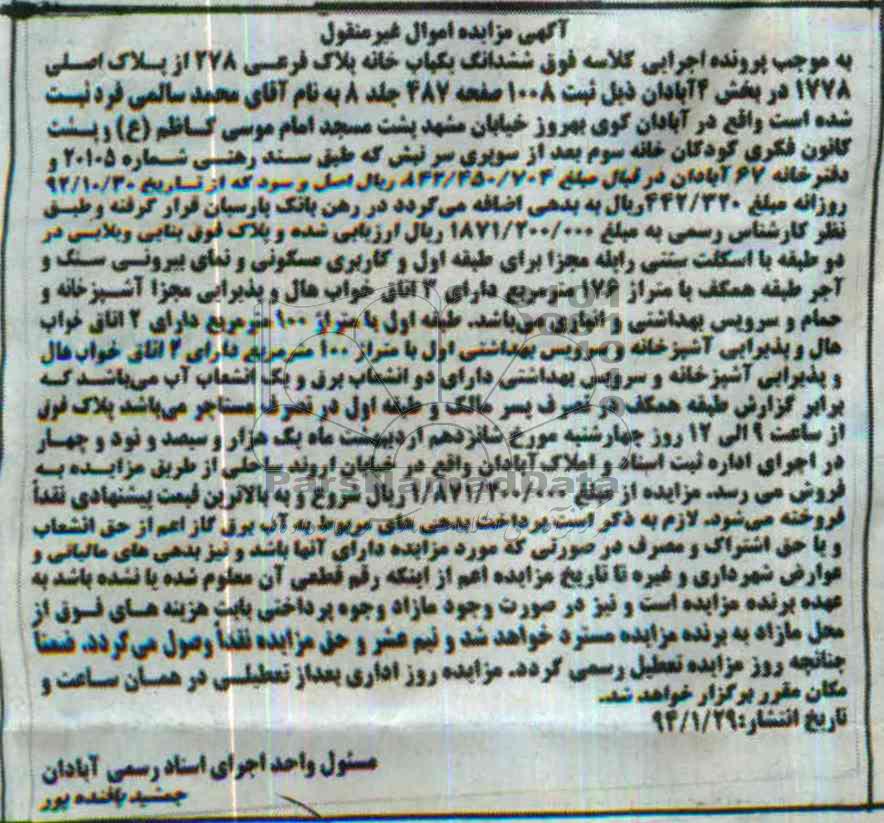 آگهی مزایده اموال غیر منقول
به موجب پرونده اجرایی کلاسه فوق ششدانگ یکباب خانه پلاک فرعی ۲۷۸ از پلاک اصلی
۱۷۷۸ در بخش ۴ آبادان ذیل ثبت ۱۰۰۸ صفحه ۴۸۷ جلد ۸ به نام آقای محمد سالمی فرد ثبت
شده است واقع در آبادان کوی بهروز خیابان مشهد پشت مسجد امام موسی کاظم (ع) و پشت
کانون فکری کودکان خانه سوم بعد از سوپری سر نبش که طبق سند رهنی شماره ۲۰۱۰۵ و
دفترخانه ۶۷ آبادان در قبال مبلغ ۸۴۲/۴۵۰/۷۰۴ ریال اصل و سود که از تاریخ ۹۲/۱۰/۳۰
روزانه مبلغ ۴۴۲/۳۲۰ ریال به بدهی اضافه می‌گردد در رهن بانک پارسیان قرار گرفته و طبق
نظر کارشناس رسمی به مبلغ ۱۸۷۱/۲۰۰/۰۰۰ ریال ارزیابی شده و پلاک فوق بنایی ویلایی در
دو طبقه با اسکلت سنتی راپله مجزا برای طبقه اول و کاربری مسکونی و نمای بیرونی سنگ و
آجر طبقه همکف با متراژ ۱۷۶ مترمربع دارای ۳ اتاق خواب هال و پذیرایی مجزا آشپزخانه و
حمام و سرویس بهداشتی و انباری می‌باشد. طبقه اول با متراژ ۱۰۰ مترمربع دارای ۲ اتاق خواب
هال و پذیرایی آشپزخانه و سرویس بهداشتی اول با متراژ ۱۰۰ مترمربع دارای ۲ اتاق خواب هال
و پذیرایی آشپزخانه و سرویس بهداشتی دارای دو انشعاب برق و یک انشعاب آب می‌باشد که
برابر گزارش طبقه همکف در تصرف پسر مالک و طبقه اول در تصرف مستاجر می‌باشد پلاک فوق
از ساعت ۹ الی ۱۲ روز چهارشنبه مورخ شانزدهم اردیبهشت ماه یک هزار و سیصد و نود و چهار
در اجرای اداره ثبت اسناد و املاک آبادان واقع در خیابان اروند ساحلی از طریق مزایده به
فروش می رسد. مزایده از مبلغ ۱/۸۷۱/۲۰۰/۰۰۰ ریال شروع و به بالاترین قیمت پیشنهادی نقداً
فروخته می‌شود. لازم به ذکر است پرداخت بدهی های مربوط به آب برق گاز اعم از حق انشعاب
و یا حق اشتراک و مصرف در صورتی که مورد مزایده دارای آنها باشد و نیز بدهی های مالیاتی و
عوارض شهرداری و غیره تا تاریخ مزایده اعم از اینکه رقم قطعی آن معلوم شده یا نشده باشد به
عهده برنده مزایده است و نیز در صورت وجود مازاد وجوه پرداختی بابت هزینه های فوق از
محل مازاد به برنده مزایده مسترد خواهد شد و نیم عشر و حق مزایده نقداً وصول می‌گردد. ضمناً
چنانچه روز مزایده تعطیل رسمی گردد. مزایده روز اداری بعداز تعطیلی در همان ساعت و
مکان مقرر برگزار خواهد شد.
تاریخ انتشار: ۹۴/۱/۲۹
مسئول واحد اجرای اسناد رسمی آبادان
جمشید بافنده پور
ParsNamadData